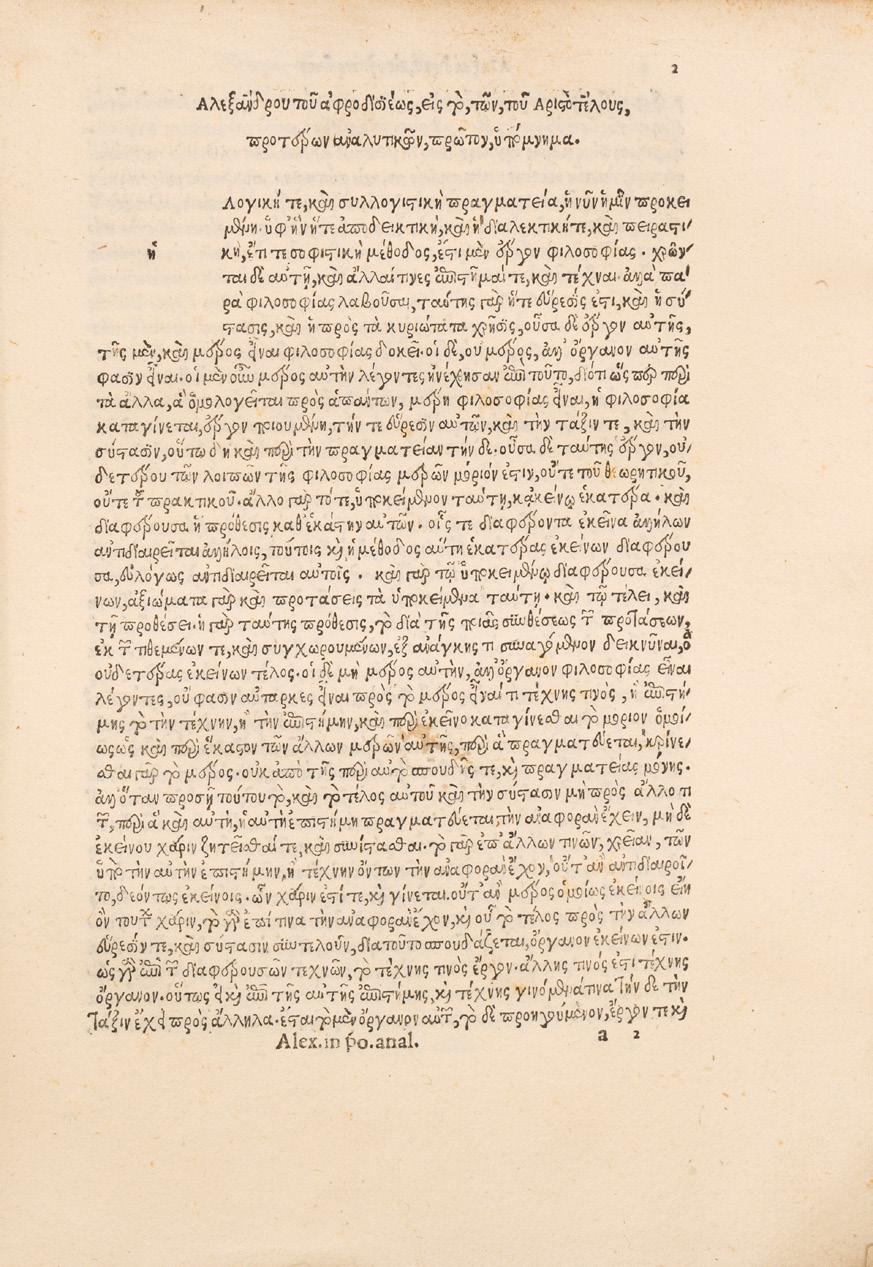 2
Αλεξάνδρου τοῦ ἀφροδισιέως, εἰς τὸ, τῶν, τοῦ Αριστοτέλους,
προτέρων ἀναλυτικῶν, πρῶτον, ὑπόμνημα.
Λογική τε, καὶ συλλογιστικὴ πραγματεία, ἡ νῦν ἡμῖν προκει
μένη· ὑφ' ἣν ἥτε ἀποδεικτικὴ, καὶ ἡ διαλεκτικήτε, καὶ πειραστι/
ἡ
κὴ, ἔτι τε σοφιστικὴ μέθοδος, ἔστι μὲν ἔργον φιλοσοφίας· χρῶν/
ται δὲ αὐτῇ, καὶ ἄλλαι τινες ἐπιστῆμαί τε, καὶ τέχναι· ἀλλὰ πα/
ρὰ φιλοσοφίας λαβοῦσαι, ταύτης γὰρ ἥτε εὕρεσίς ἐστι, καὶ ἡ σύ/
στασις, καὶ ἡ πρὸς τὰ κυριώτατα χρῆσις, οὖσα δὲ ἔργον αὐτῆς,
τῆς μὲν, καὶ μέρος εἶναι φιλοσοφίας δοκεῖ· οἱ δὲ, οὐ μέρος, ἀλλ' ὄργανον αὐτῆς
φασὶν εἶναι· οἱ μὲν οὖν μέρος αὐτὴν λέγοντες ἠνέχθησαν ἐπὶ τοῦτο, διότι ὥσπερ περὶ
τὰ ἄλλα, ἃ ὁμολογεῖται πρὸς ἁπάντων, μέρη φιλοσοφίας εἶναι, ἡ φιλοσοφία
καταγίνεται, ἔργον ποιουμένη, τήν τε εὕρεσιν αὐτῶν, καὶ τὴν τάξιν τε, καὶ τὴν
σύστασιν, οὕτω δὴ καὶ περὶ τὴν πραγματείαν τήν δε· οὖσα δὲ ταύτης ἔργον, οὐ/
δετέρου τῶν λοιπῶν τῆς φιλοσοφίας μερῶν μόριόν ἐστιν, οὔτε τοῦ θεωρητικοῦ,
οὔτε τοῦ πρακτικοῦ· ἄλλο γὰρ τό τε, ὑποκείμενον ταύτῃ, κἀκείνων ἑκατέρᾳ· καὶ
διαφέρουσα ἡ πρόθεσις καθ' ἑκάστην αὐτῶν· οἷς τε διαφέροντα ἐκεῖνα ἀλλήλων
ἀντιδιαιρεῖται ἀλλήλοις, τούτοις καὶ ἡ μέθοδος αὕτη ἑκατέρας ἐκείνων διαφέρου
σα, εὐλόγως ἀντιδιαιρεῖται αὐτοῖς· καὶ γὰρ τῷ ὑποκειμένῳ διαφέρουσα ἐκεί/
νων, ἀξιώματα γὰρ καὶ προτάσεις τὰ ὑποκείμενα ταύτῃ· καὶ τῷ τέλει, καὶ
τῇ προθέσει· ἡ γὰρ ταύτης πρόθεσις, τὸ διὰ τῆς ποιᾶς συνθέσεως τῶν προτάσεων,
ἐκ τῶν τιθεμένων τε, καὶ συγχωρουμένων, ἐξ ἀνάγκης τι συναγόμενον δεικνύναι, ὃ
οὐδετέρας ἐκείνων τέλος· οἱ δὲ μὴ μέρος αὐτὴν, ἀλλ' ὄργανον φιλοσοφίας εἶναι
λέγοντες, οὔ φασιν αὔταρκες εἶναι πρὸς τὸ μέρος εἶναί τι τέχνης τινὸς, ἢ ἐπιστή/
μης τὸ τὴν τέχνην, ἢ τὴν ἐπιστήμην, καὶ περὶ ἐκεῖνο καταγίνεσθαι τὸ μόριον ὁμοί/
ως ὡς καὶ περὶ ἕκαστον τῶν ἄλλων μερῶν αὐτῆς, περὶ ἃ πραγματεύεται, κρίνε/
σθαι γὰρ τὸ μέρος· οὐκ ἀπὸ τῆς περὶ αὐτὸ σπουδῆς τε, καὶ πραγματείας μόνης·
ἀλλ' ὅταν προσῇ τούτου τὸ, καὶ τὸ τέλος αὐτοῦ καὶ τὴν σύστασιν μὴ πρὸς ἄλλο τι
τῶν, περὶ ἃ καὶ αὐτὴ, ἡ αὐτὴ ἐπιστήμη πραγματεύεται, τὴν ἀναφορὰν ἔχειν, μη δὲ
ἐκείνου χάριν ζητεῖσθαί τε, καὶ συνίστασθαι· τὸ γὰρ ἐπ' ἄλλων τινῶν, χρείαν, τῶν
ὑπὸ τὴν αὐτὴν ἐπιστήμην, ἢ τέχνην ὄντων τὴν ἀναφορὰν ἔχον, οὔτ' ἂν ἀντιδιαιροῖ/
το, δεόντως ἐκείνοις· ὧν χάριν ἐστί τε, καὶ γίνεται· οὔτ' ἂν μέρος ὁμοίως ἐκείνοις εἴη
ὂν τούτων χάριν, τὸ γὰρ ἐπί τινα τὴν ἀναφορὰν ἔχον, καὶ οὗ τὸ τέλος πρὸς τὴν ἄλλων
εὕρεσίν τε, καὶ σύστασιν συντελοῦν, διὰ τοῦτο σπουδάζεται, ὄργανον ἐκείνων ἐστίν·
ὡς γὰρ ἐπὶ τῶν διαφερουσῶν τεχνῶν, τὸ τέχνης τινὸς ἔργον· ἄλλης τινός ἐστι τέχνης
ὄργανον· οὕτως εἰ καὶ ἐπὶ τῆς αὐτῆς ἐπιστήμης, καὶ τέχνης γινόμενά τινα τὴν δε τὴν
τάξιν ἔχει πρὸς ἄλληλα· ἔσται τὸ μὲν ὄργανον αὐτῶν, τὸ δὲ προηγουμένον, ἔργόν τε καὶ
Alex. in po. anal. a 2